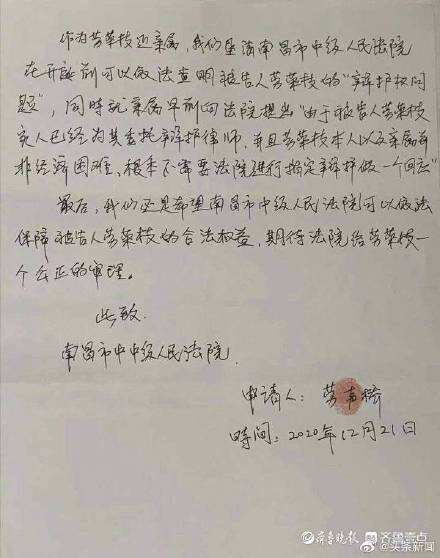 作为劳荣枝近亲属，我们恳请南昌市中级人民法院
在开庭前可以依法查明被告人劳荣枝的“辩护权问
题”，同时就亲属早前向法院提出“由于被告人劳荣枝
家人已经为其委托辩护律师，并且劳荣枝本人以及亲属前
非经济困难，根本不需要法院进行指定辩护做一个回应”
最后，我们还是希望南昌市中级人民法院可以依法
保障被告人劳荣枝的合法权益，期待法院给劳荣枝一
个公正的审理。
此致
南昌市中中级人民法院
申请人：劳
时间：2020年12月21日
齐鲁晚报 齐鲁壹点
@头条新闻